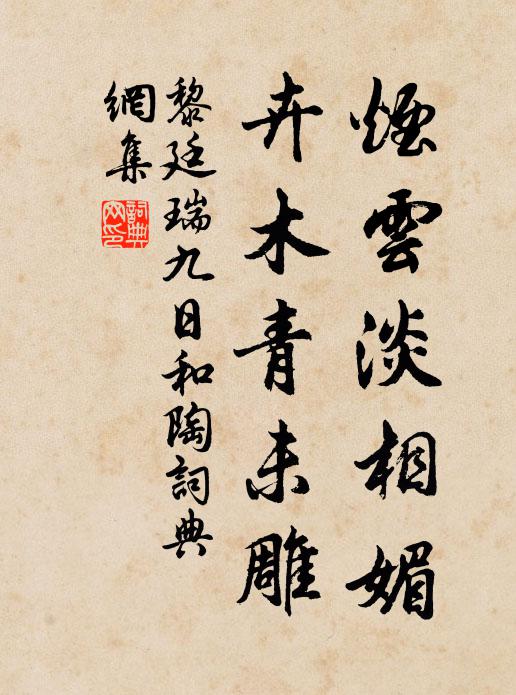 煙雲淡相媚
卉木青未雕
黎廷瑞九日和陶詞典
網集
詞典網印